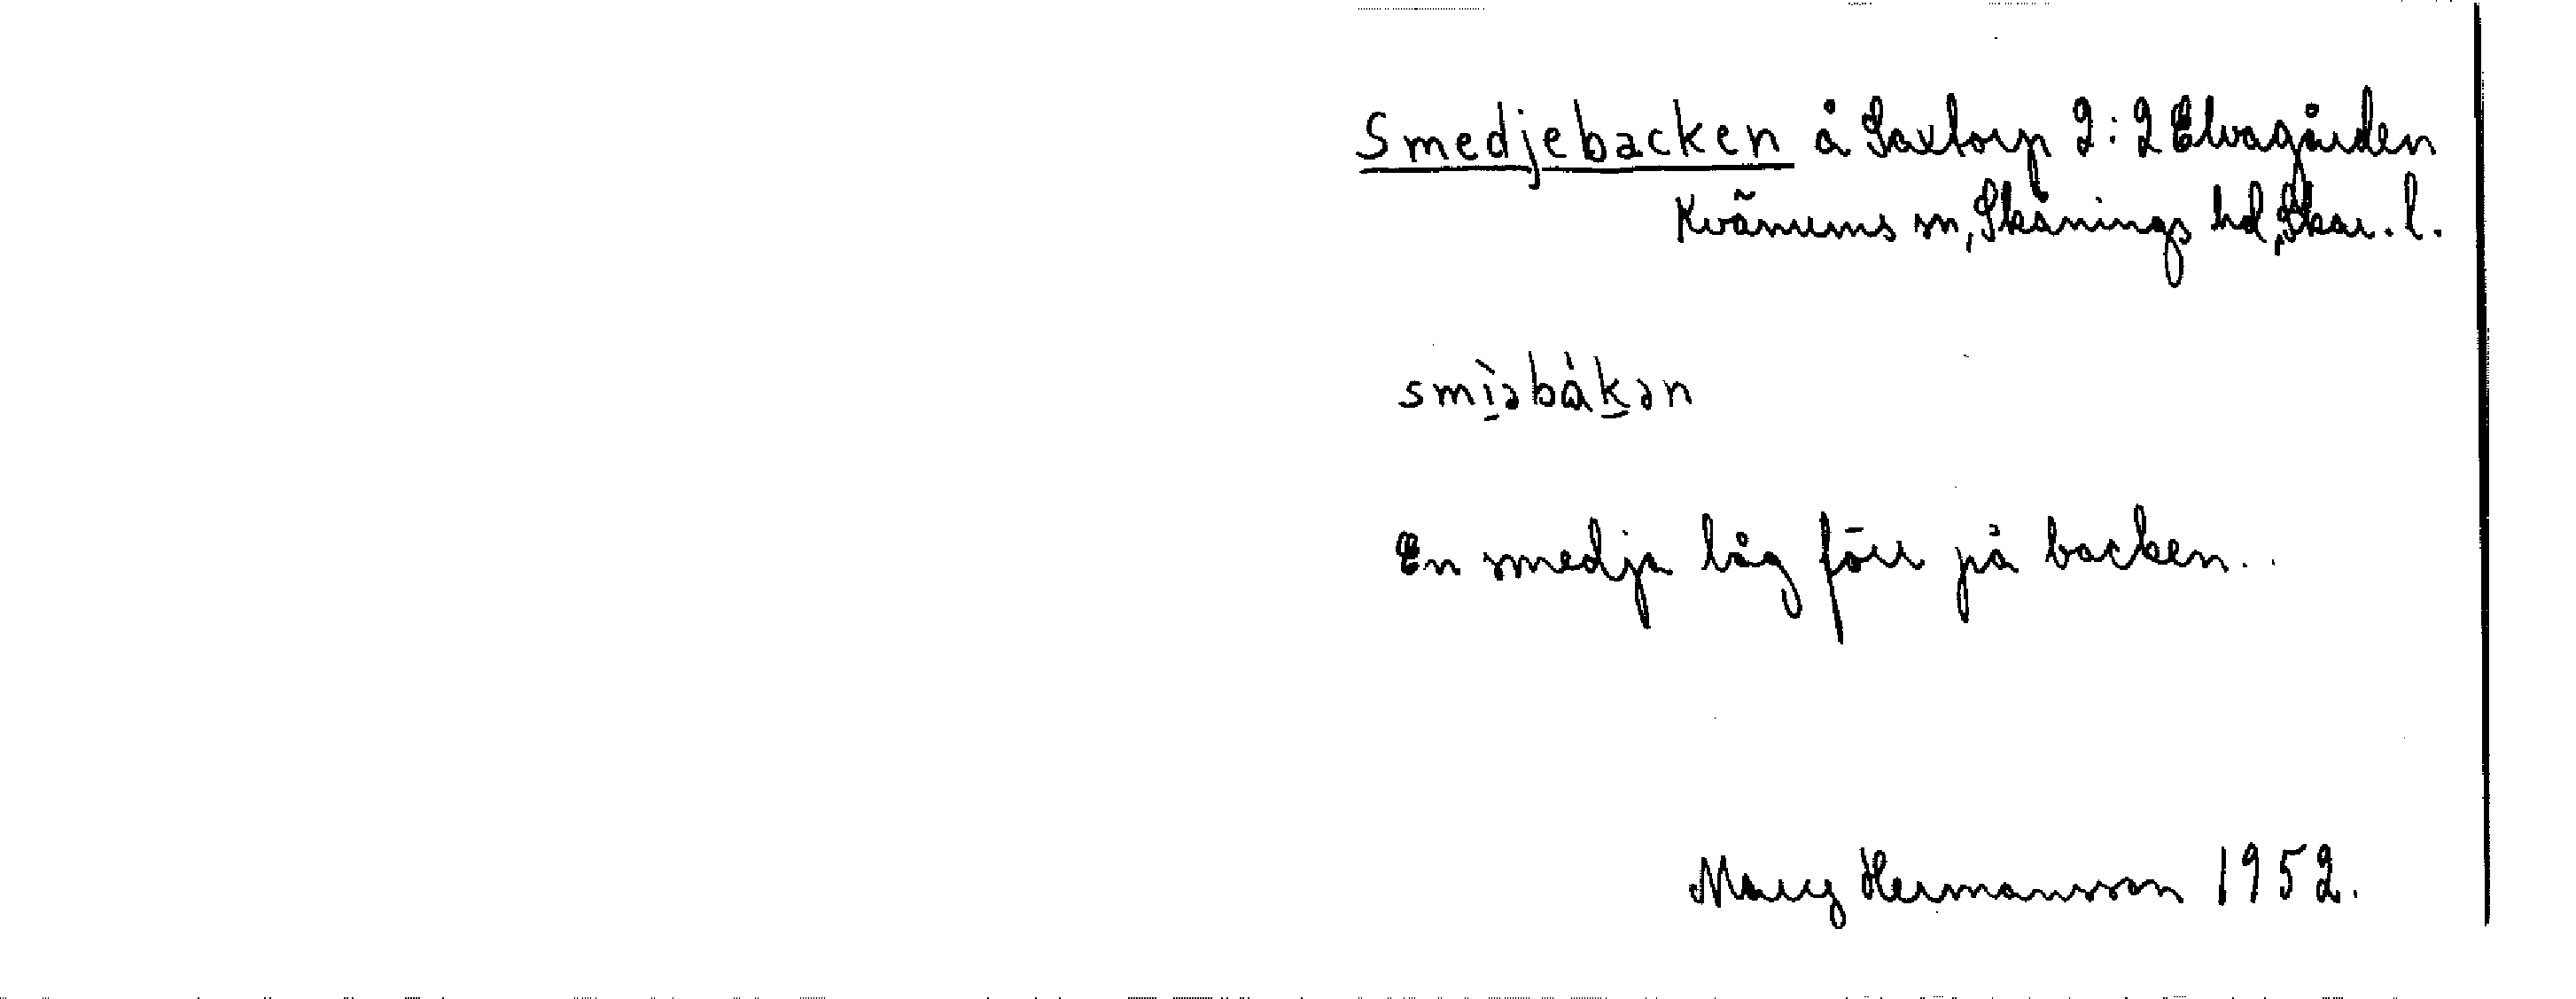 Smedjebacken å Saxtorp 2:2 Elvagården
Kvänums sn, Skånings hd, Skar. l.
smìəbàkən
En smedja låg förr på backen.
Mary Hermansson 1952.